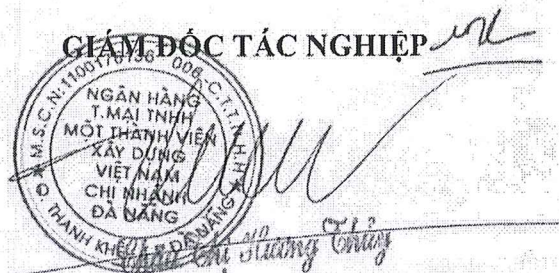 GIÁM ĐỐC TÁC NGHIỆP
M.S.C.N:1100178156-006-C.T.T.N.H.H
NGÂN HÀNG
T.MẠI TNHH
MỘT THÀNH VIÊN
XÂY DỰNG
VIỆT NAM
CHI NHÁNH
ĐÀ NẴNG
Q. THANH KHÊ ĐÀ NẴNG
Thị Hương Thủy